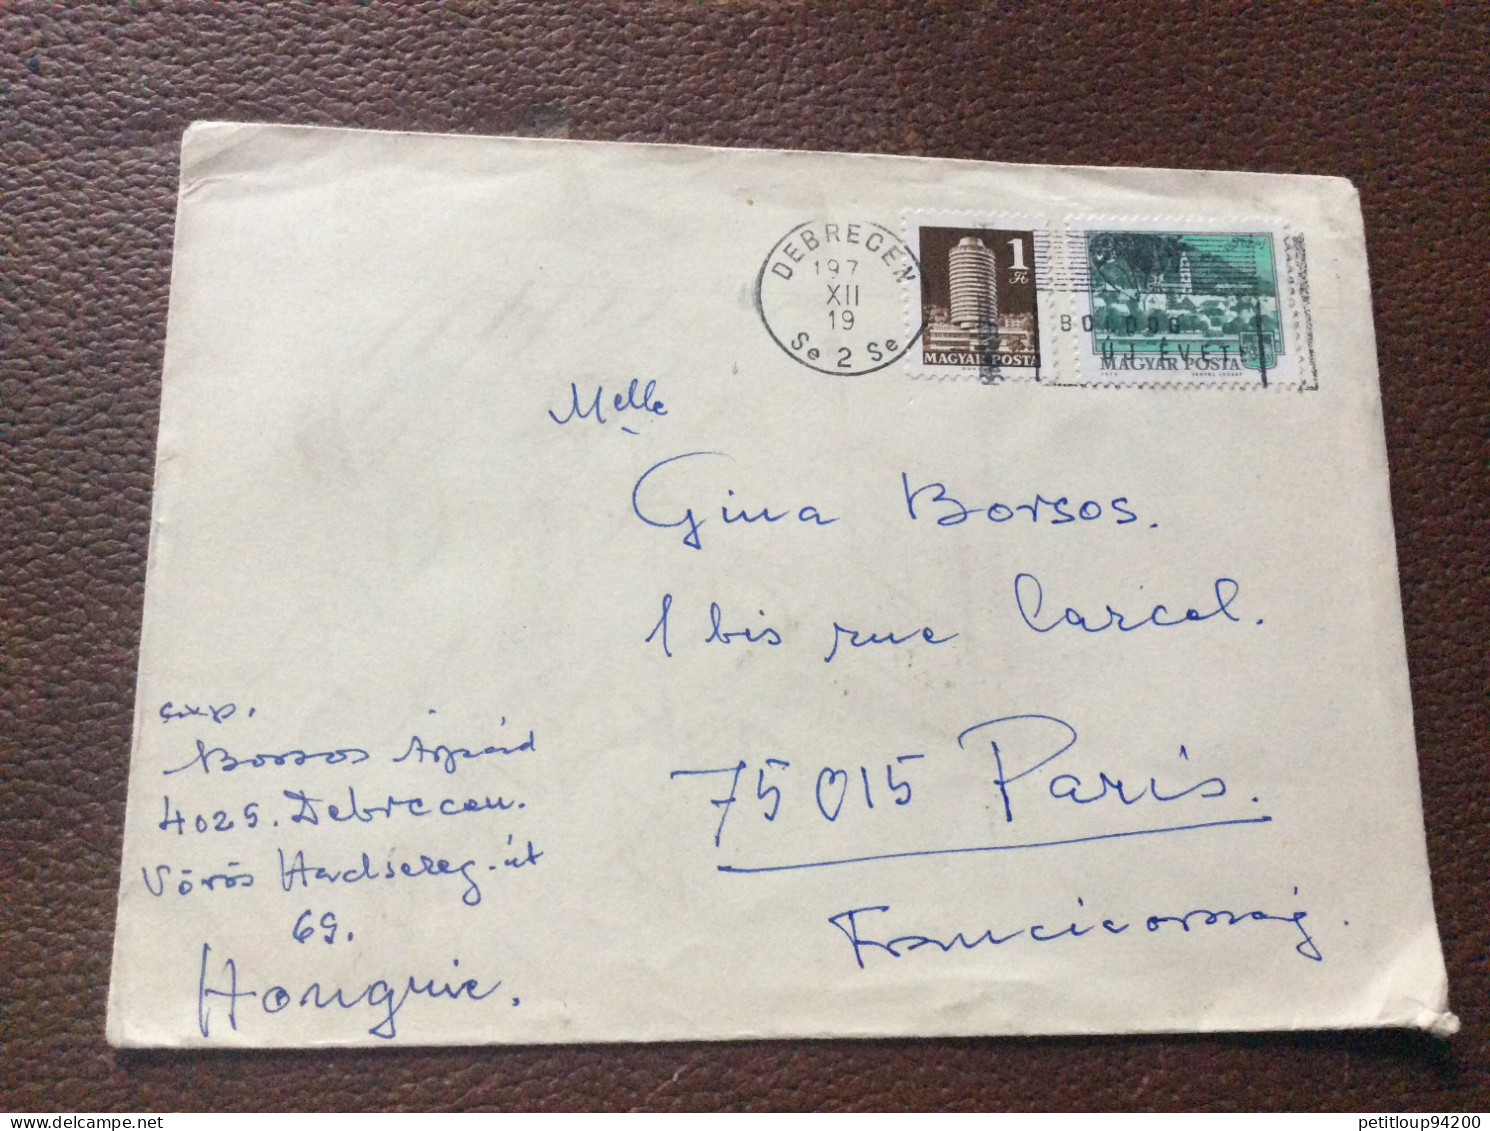 DEBRECEN
197
XII
19
Se 2 Se
1
Ft
MAGYAR POSTA
BOLDOG
ÚJ ÉVET!
MAGYAR POSTA
Melle
Gina Borsos.
1 bis rue Carcel.
75015 Paris.
Franciország.
exp.
Borsos Árpád
4025. Debrecen.
Vörös Hadsereg-út
69.
Hongrie.
petitloup94200